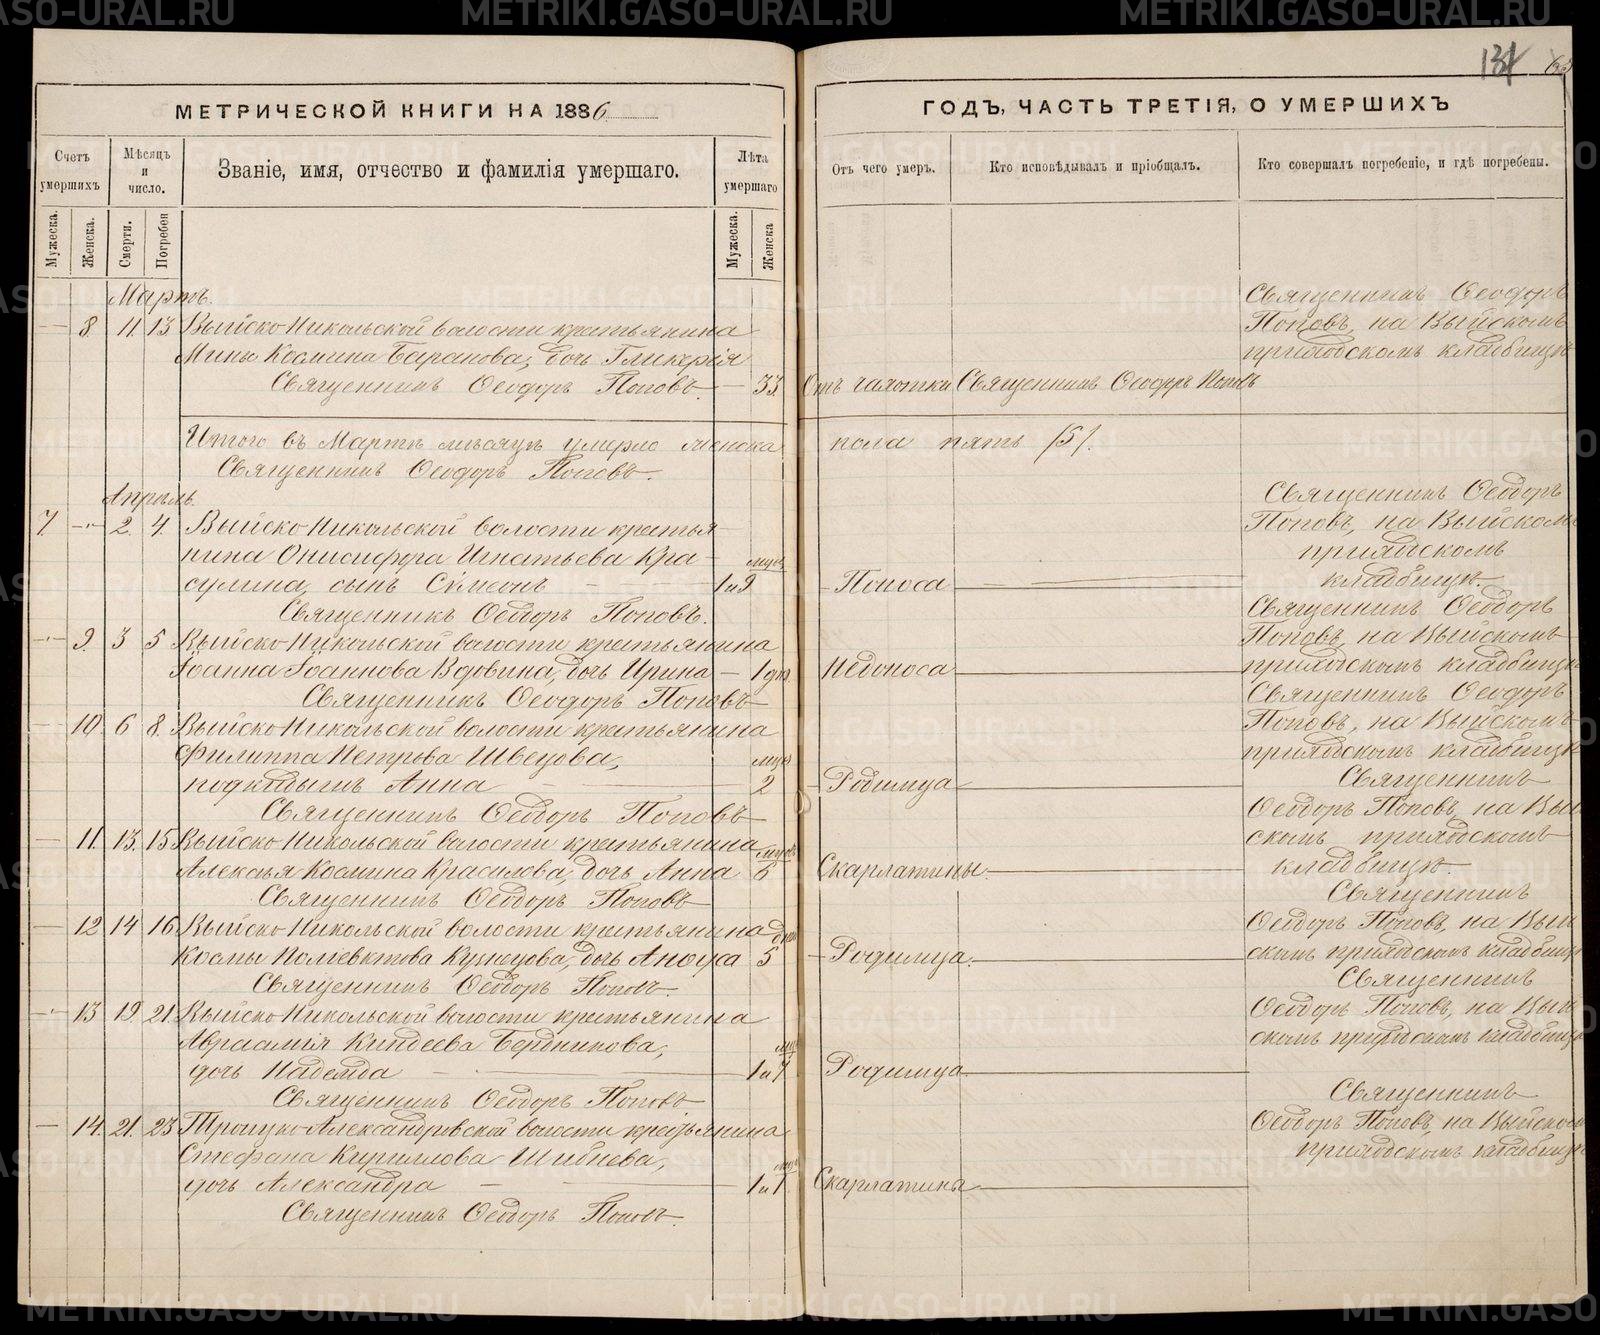 МЕТРИЧЕСКОЙ КНИГИ НА 1886
Счетъ умершихъ
Мѣсяцъ и число.
Званіе, имя, отчество и фамилія умершаго.
Лѣта умершаго
Мужеска.
Женска.
Смерти.
Погребен
Мужеска.
Женска
Мартъ.
— 8. 11. 13 Выйско Никольской волости крестьянина
Мины Космина Баранова, дочь Гликерія
Священникъ Ѳеодоръ Поповъ. — 33.
Итого въ Мартѣ мѣсяцѣ умерло женска
Священникъ Ѳеодоръ Поповъ.
Апрѣль.
7. —"— 2. 4. Выйско Никольской волости крестья
нина Онисифора Игнатьева Кра — мцов
сулина, сынъ Сѵмеонъ — 1 и 9
Священникъ Ѳеодоръ Поповъ.
—"— 9. 3 5 Выйско-Никольской волости крестьянина
Іоанна Іоаннова Вдовина, дочь Ирина — 1 дн.
Священникъ Ѳеодоръ Поповъ
— 10. 6 8. Выйско-Никольской волости крестьянина
Филиппа Петрова Швецова, мцов
подкидышъ Анна — 2
Священникъ Ѳеодоръ Поповъ
— 11. 13. 15 Выйско-Никольской волости крестьянина мцовъ
Алексѣя Космина Красилова, дочь Анна 6
Священникъ Ѳеодоръ Поповъ
— 12 14 16 Выйско-Никольской волости крестьянина дней
Космы Поліевктова Кузнецова, дочь Аноиса 5
Священникъ Ѳеодоръ Поповъ.
—"— 13 19. 21. Выйско-Никольской волости крестьянина
Авраамія Киндеева Бердникова, мцов
дочь Надежда — 1 и 7
Священникъ Ѳеодоръ Поповъ
— 14. 21. 23 Троицко-Александровской волости крестьянина
Стефана Кириллова Шибнева, мцов
дочь Александра — 1 и 1
Священникъ Ѳеодоръ Поповъ.
131
ГОДЪ, ЧАСТЬ ТРЕТІЯ, О УМЕРШИХЪ
Отъ чего умеръ.
Кто исповѣдывалъ и пріобщалъ.
Кто совершалъ погребеніе, и гдѣ погребены.
Священникъ Ѳеодоръ
Поповъ, на Выйскомъ
приходскомъ кладбищѣ
Отъ чахотки Священникъ Ѳеодоръ Поповъ
пола пять /5/.
Священникъ Ѳеодоръ
Поповъ, на Выйскомъ
приходскомъ
Поноса кладбищѣ.
Священникъ Ѳеодоръ
Поповъ, на Выйскомъ
Недоноса приходскомъ кладбищѣ
Священникъ Ѳеодоръ
Поповъ, на Выйскомъ
приходскомъ кладбищѣ
Родимца Священникъ
Ѳеодоръ Поповъ, на Вый
скомъ приходскомъ
Скарлатины. кладбищѣ.
Священникъ
Ѳеодоръ Поповъ, на Вый
Родимца. скомъ приходскомъ кладбищѣ
Священникъ
Ѳеодоръ Поповъ, на Вый
скомъ приходскомъ кладбищѣ
Родимца.
Священникъ
Ѳеодоръ Поповъ, на Выйском
приходскомъ кладбищѣ
Скарлатина
METRIKI.GASO-URAL.RU